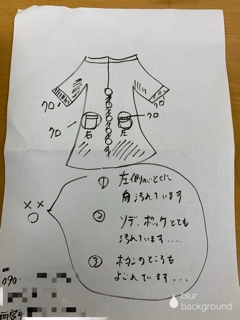 クロ
クロ
クロ
右
左
① 左側がとくに
肩汚れています
② ソデ、ポッケとても
汚れています....
③ ボタンのところも
よごれています...
090-
blur
background